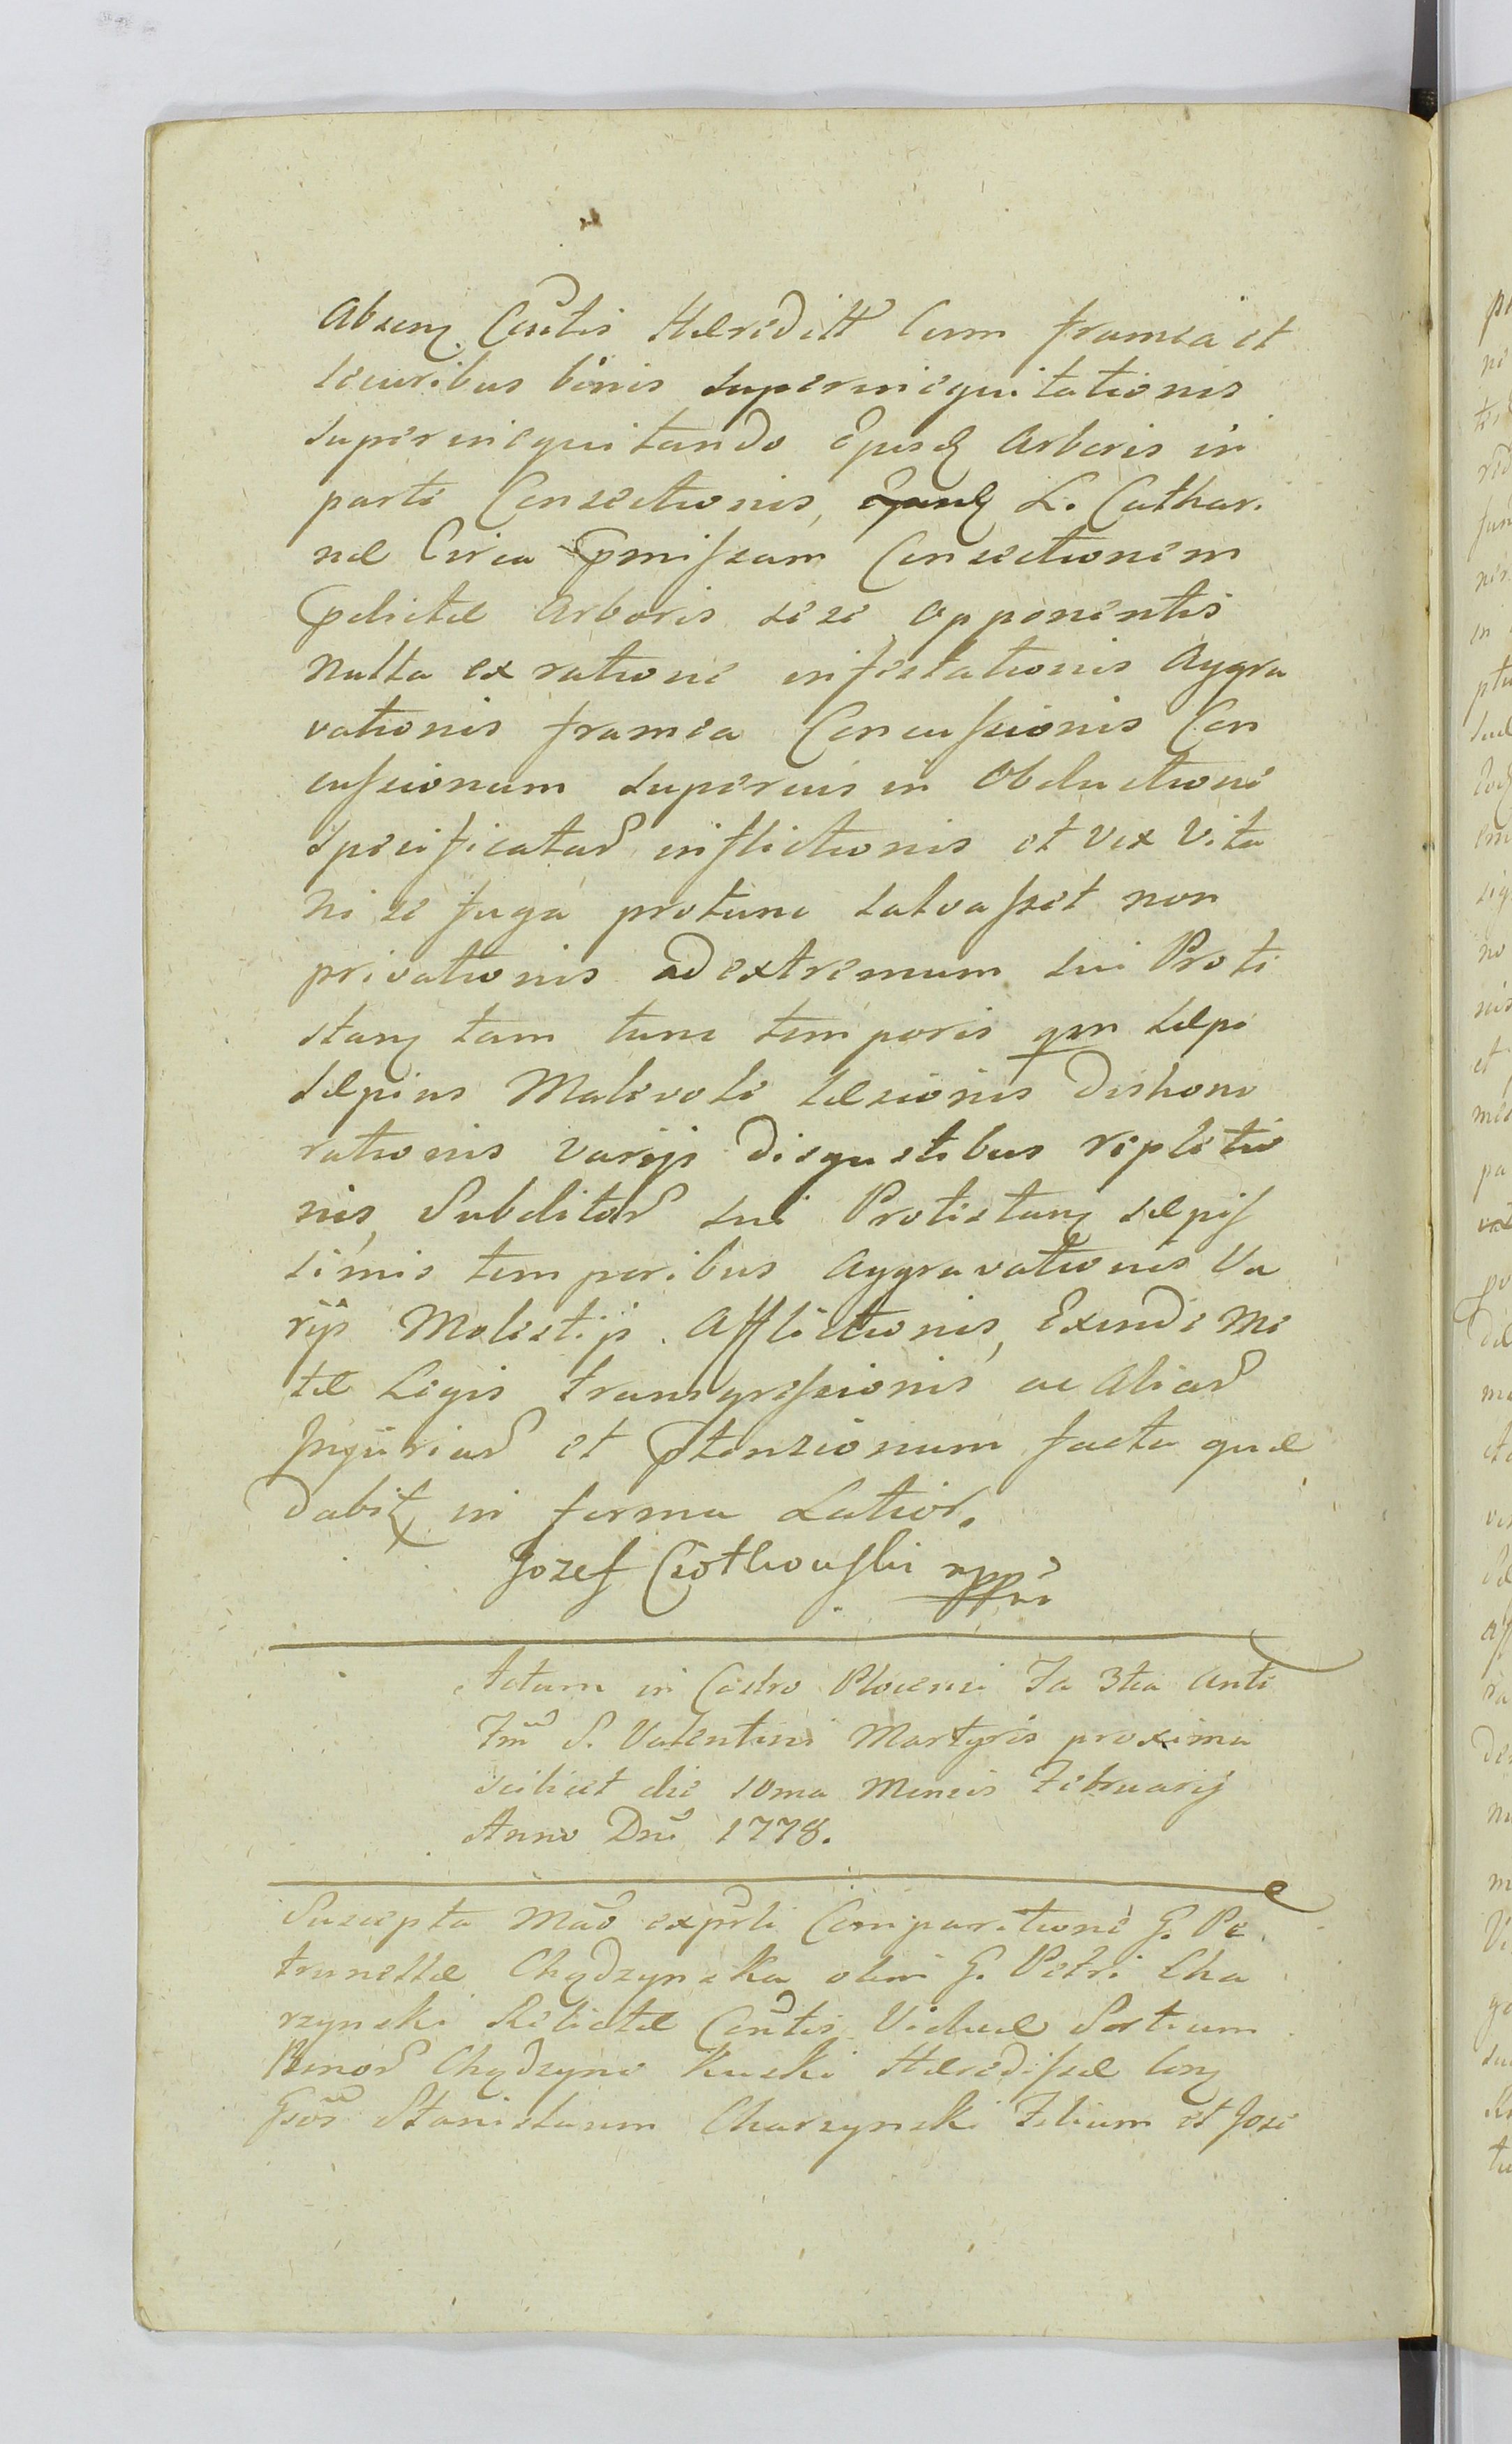 Absenq Cöutis Hæreditt Cum framea et
securibus binis supervieequitationis
superviequitando Ejusq Arboris in
parte Consectionis, L. Cathar.
næ Circa pmissam Consectionem
pdictæ Arboris sese opponentis
nulla ex ratione infestationis Aggra
vationis framea Concussionis Con
cussionum superius in Obductione
Specificatar inflictionis et vix Vita
ni se fuga protunc salvasset non
privationis ad extremum sui Prote
stanq tam tunc temporis qm sæpe
sæpius Malevole læsionis Dishono
rationis varijs disgustibus repletio
nis, Subditor sui Protestanq sæpis
simis temporibus Aggravationis Va
rijs Molestijs Afflictionis, Exinde me
tæ Legis transgressionis ac Aliar
Injuriar et ptensionum facta quæ
dabit in forma Latior.
Jozef Ciołkowski mppria
Actum in Castro Plocensi Fa 3tia Ante
Fm S. Valentini Martyris proxima
scilicet die 10ma Mensis Februarij
Anno Dni 1778.
Suscepta Mao expsti Comparitione G. Pe
trunellæ Chądzynska olim G. Petri Cha
rzynski Relictæ Contis Viduæ Sortium
Bonor Chądzyno Kuski Hæredissæ Conq
Gsos Stanislaum Charzynski Filium et Jose